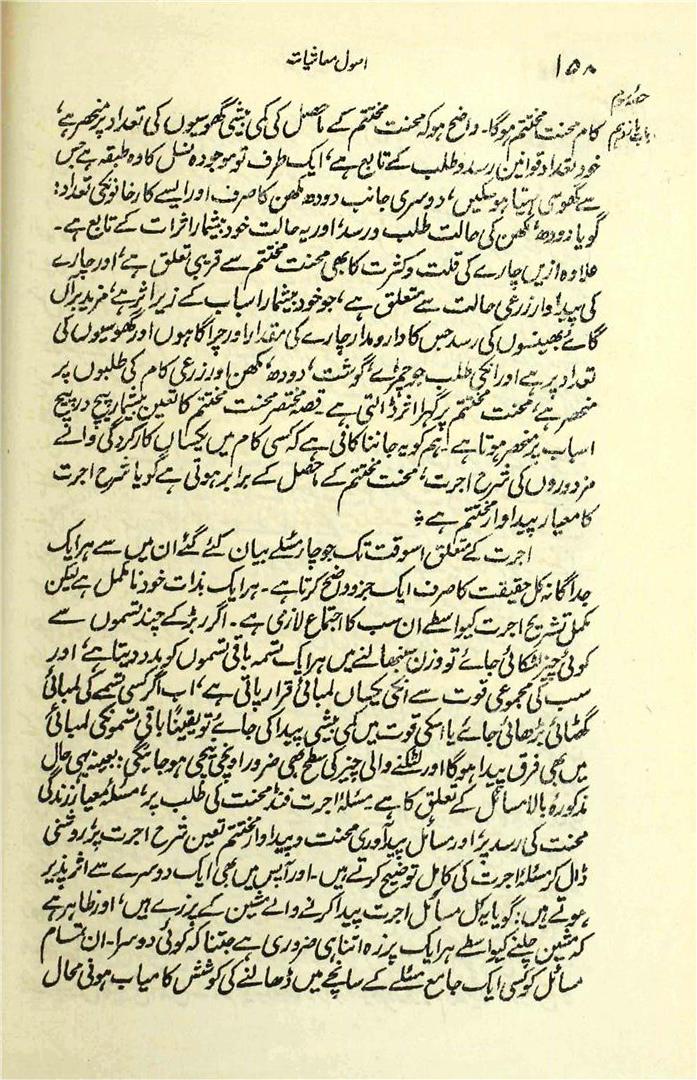 ۱۵۸
اصول معاشیات
حصہ دوم
کام محنت مختتم ہوگا۔ واضح ہو کہ محنت مختتم کے ماحصل کی کمی بیشی گھوسیوں کی تعداد پر منحصر ہے،
خود تعداد قوانین رسد و طلب کے تابع ہے، ایک طرف تو موجودہ نسل کا وہ طبقہ ہے جس
سے گھوسی مہیا ہوسکیں، دوسری جانب دودھ مکھن کا صرف اور ایسے کارخانونکی تعداد:
گویا دودھ، مکھن کی حالت طلب و رسد، اور یہ حالت خود بیشمار اثرات کے تابع ہے۔
علاوہ ازیں چارے کی قلت و کثرت کا بھی محنت مختتم سے قریبی تعلق ہے، اور چارے
کی پیداوار زرعی حالت سے متعلق ہے، جو خود بیشمار اسباب کے زیر اثر ہے، مزید براں
گائے بھینسوں کی رسد جس کا دارومدار چارے کی مقدار اور چراگاہوں اور گھوسیوں کی
تعداد پر ہے اور انکی طلب جو چمڑے، گوشت، دودھ، مکھن اور زرعی کام کی طلبوں پر
منحصر ہے، محنت مختتم پر گہرا اثر ڈالتی ہے۔ قصہ مختصر محنت مختتم کا تعین بیشمار پیچ در پیچ
اسباب پر منحصر ہوتا ہے۔ ہم کو یہ جاننا کافی ہے کہ کسی کام میں یکساں کارکردگی والے
مزدوروں کی شرح اجرت، محنت مختتم کے ماحصل کے برابر ہوتی ہے گویا شرح اجرت
کا معیار پیداوار مختتم ہے ؞
اجرت کے متعلق اسوقت تک جو چار مسئلے بیان کئے گئے ان میں سے ہر ایک
جداگانہ کل حقیقت کا صرف ایک جزو واضح کرتا ہے۔ ہر ایک بذات خود نامکمل ہے لیکن
مکمل تشریح اجرت کیواسطے ان سب کا اجتماع لازمی ہے۔ اگر ربڑ کے چند تسموں سے
کوئی چیز لٹکائی جائے تو وزن سنبھالنے میں ہر ایک تسمہ باقی تسموں کو مدد دیتا ہے، اور
سب کی مجموعی قوت سے انکی یکساں لمبائی قرار پاتی ہے، اب اگر کسی تسمے کی لمبائی
گھٹائی بڑھائی جائے یا اسکی قوت میں کمی بیشی پیدا کی جائے تو یقیناً باقی تسمونکی لمبائی
میں بھی فرق پیدا ہوگا اور لٹکنے والی چیز کی سطح بھی ضرور اونچی نیچی ہو جائیگی: بعینہ یہی حال
مذکورہ بالا مسائل کے تعلق کا ہے۔ مسئلہ اجرت فنڈ محنت کی طلب پر، مسئلہ معیار زندگی
محنت کی رسد پر، اور مسائل پیدآوری محنت و پیداوار مختتم تعین شرح اجرت پر، روشنی
ڈال کر مسئلہ اجرت کی کامل توضیح کرتے ہیں۔ اور آپس میں بھی ایک دوسرے سے اثر پذیر
ہوتے ہیں: گویا یہ کل مسائل اجرت پیدا کرنے والے مشین کے پرزے ہیں، اور ظاہر ہے
کہ مشین چلنے کیواسطے ہر ایک پرزہ اتنا ہی ضروری ہے جتنا کہ کوئی دوسرا۔ ان تمام
مسائل کو کسی ایک جامع مسئلے کے سانچے میں ڈھالنے کی کوشش کامیاب ہونی محال